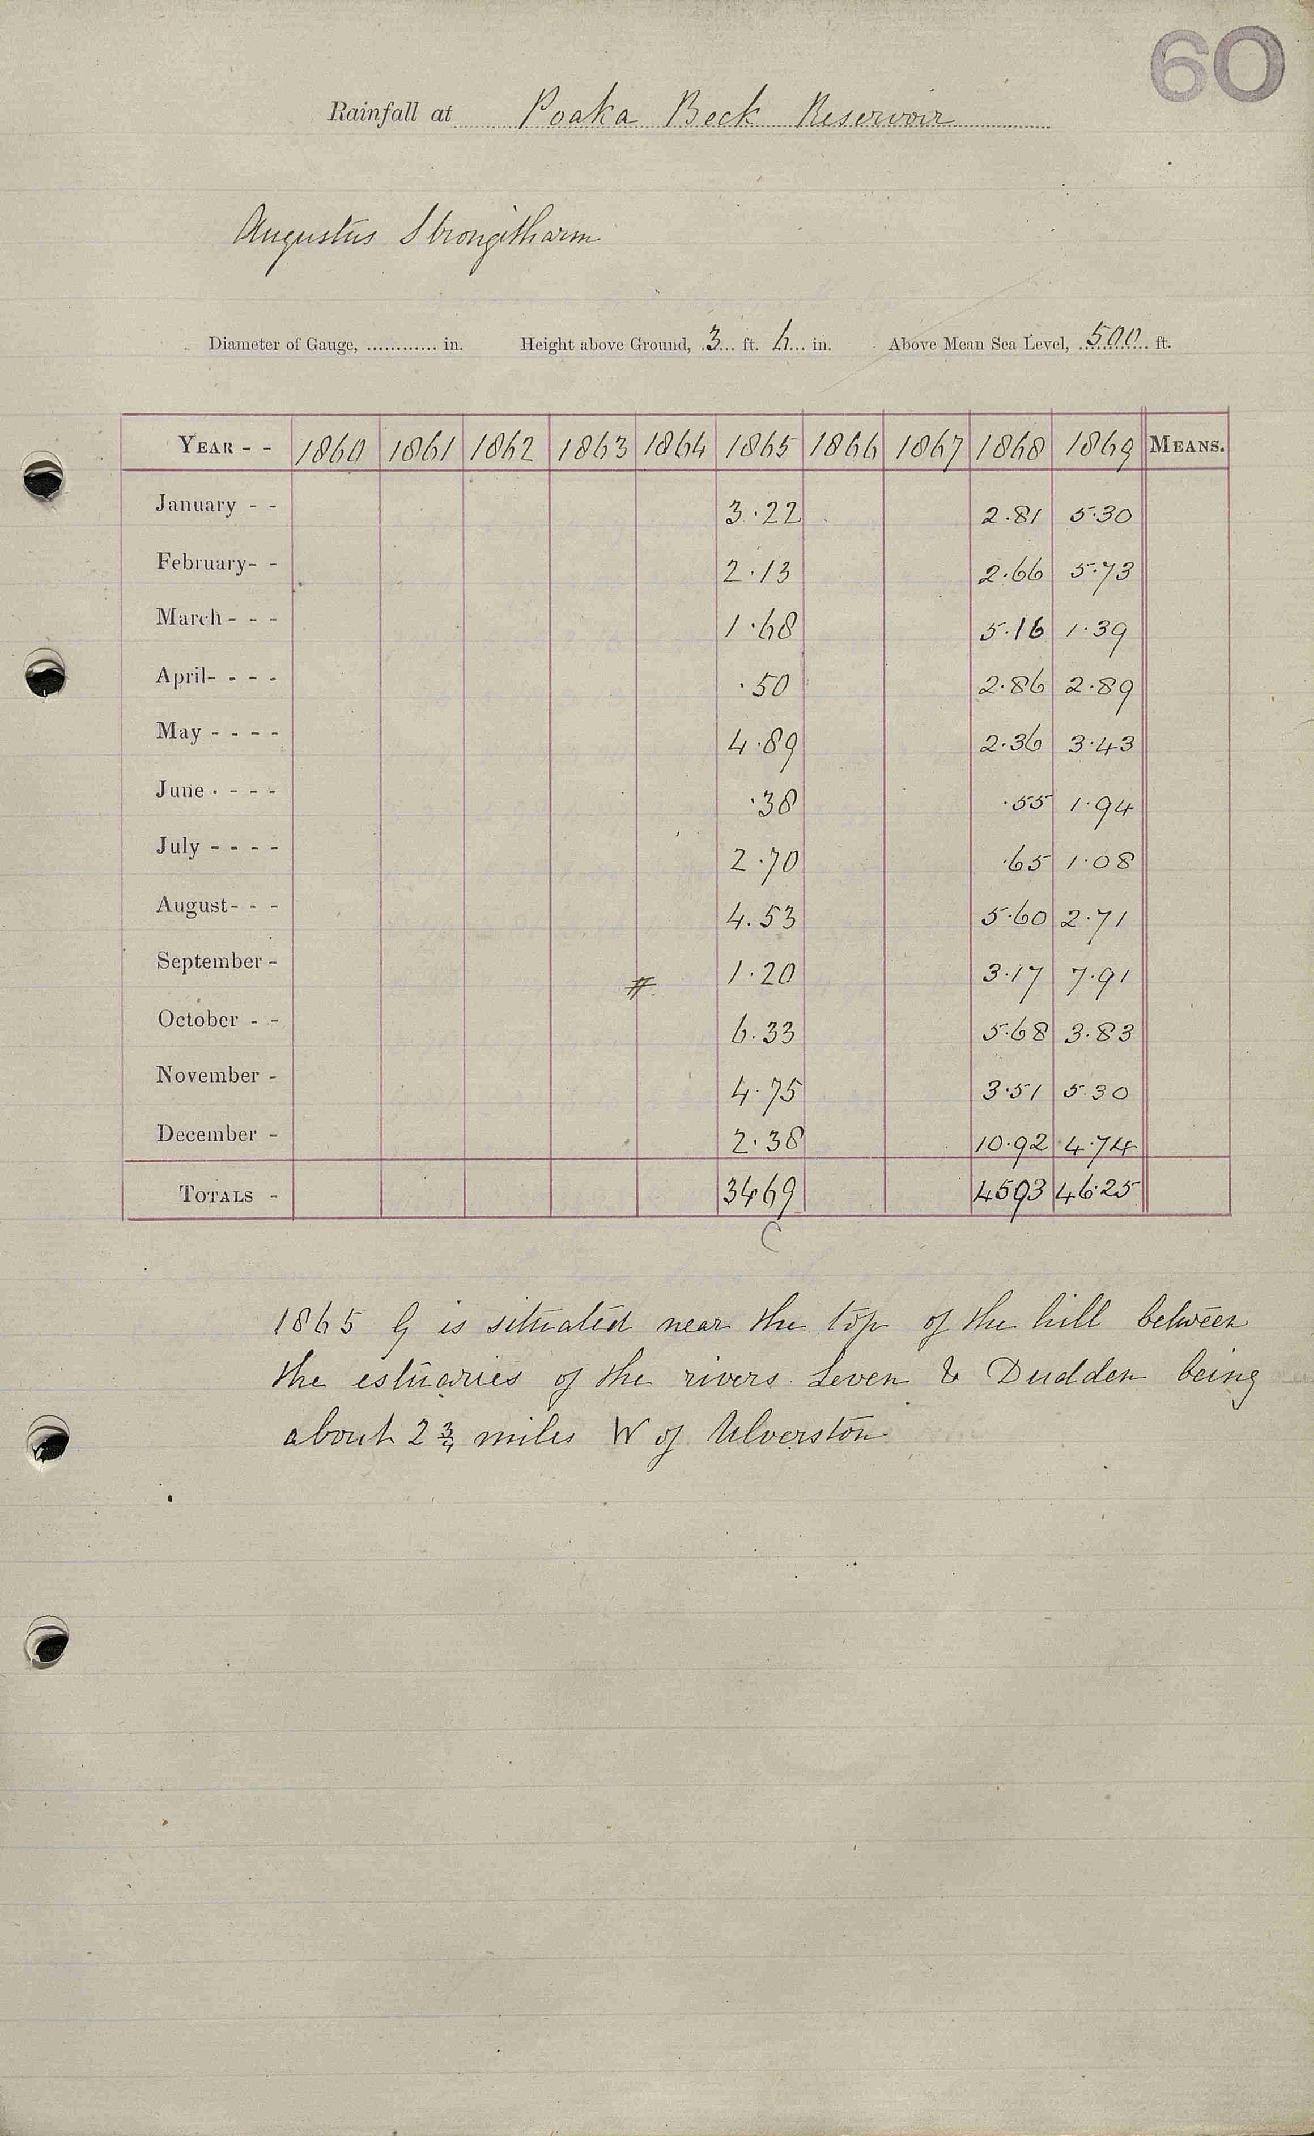 60
Rainfall at Poaka Beck Reservoir
Augustus Strongitharm
Diameter of Gauge, ............ in. Height above Ground, 3 ft. 6 in. Above Mean Sea Level, 500 ft.
YEAR - - 1860 1861 1862 1863 1864 1865 1866 1867 1868 1869 MEANS.
January - - 3.22 2.81 5.30
February- - 2.13 2.66 5.73
March - - - 1.68 5.16 1.39
April- - - - .50 2.86 2.89
May - - - - 4.89 2.36 3.43
June - - - - .38 .55 1.94
July - - - - 2.70 .65 1.08
August- - - 4.53 5.60 2.71
September - 1.20 3.17 7.91
#
October - - 6.33 5.68 3.83
November - 4.75 3.51 5.30
December - 2.38 10.92 4.74
TOTALS - 3469 4593 46.25
C
1865 G is situated near the top of the hill between
the estuaries of the rivers Leven & Dudden being
about 2 3/4 miles W of Ulverston